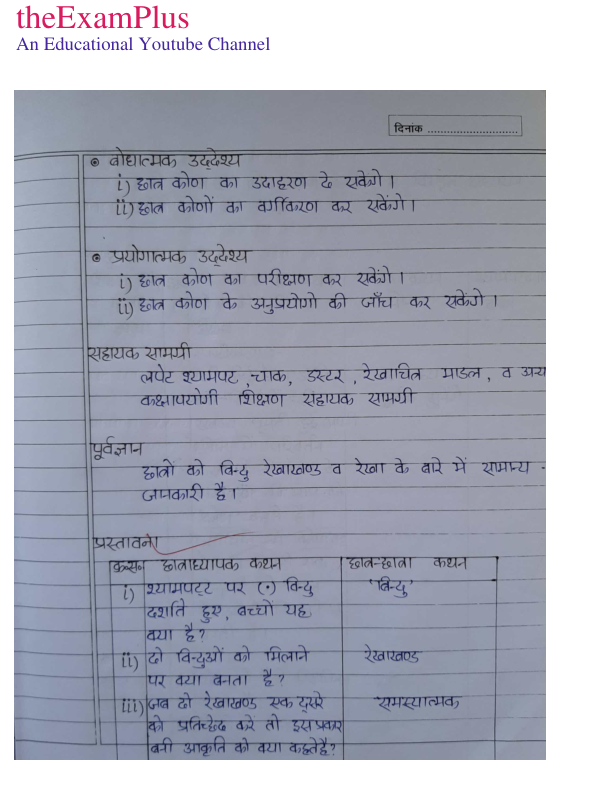 theExamPlus
An Educational Youtube Channel
दिनांक ............................
बोधात्मक उद्देश्य
i) छात्र कोण का उदाहरण दे सकेंगे।
ii) छात्र कोणों का वर्गीकरण कर सकेंगे।
प्रयोगात्मक उद्देश्य
i) छात्र कोण का परीक्षण कर सकेंगे।
ii) छात्र कोण के अनुप्रयोगो की जाँच कर सकेंगे।
सहायक सामग्री
लपेट श्यामपट, चाक, डस्टर, रेखाचित्र माडल, व अन्य
कक्षापयोगी शिक्षण सहायक सामग्री
पूर्वज्ञान
छात्रों को बिन्दु रेखाखण्ड व रेखा के बारे में सामान्य -
जानकारी है।
प्रस्तावना
क्र०सं० छात्राध्यापक कथन छात्र-छात्रा कथन
i) श्यामपट्ट पर (•) बिन्दु 'बिन्दु'
दर्शाते हुए, बच्चों यह
क्या है?
ii) दो बिन्दुओं को मिलाने रेखाखण्ड
पर क्या बनता है?
iii) जब दो रेखाखण्ड एक दूसरे समस्यात्मक
को प्रतिच्छेद करें तो इस प्रकार
बनी आकृति को क्या कहते है?